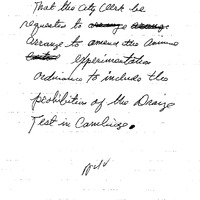 That the City Clerk be
requested to arrange
arrange to amend the Animal
experimentation
ordinance to include the
prohibition of the Draize
Test in Cambridge.